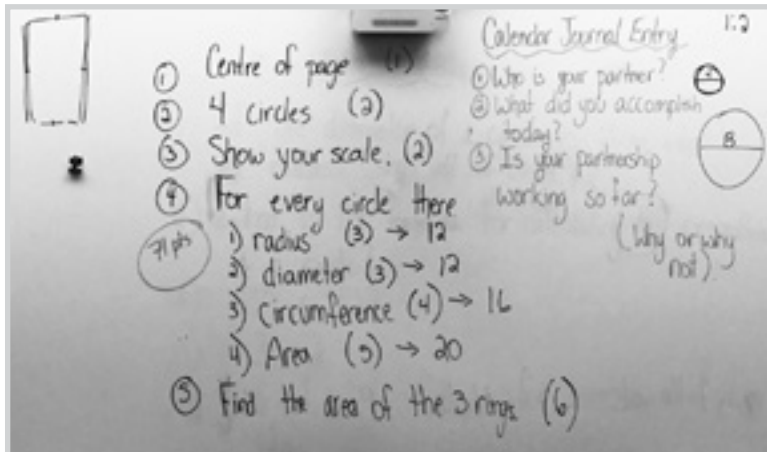 ① Centre of page (1)
② 4 circles (2)
③ Show your scale. (2)
④ For every circle there
1) radius (3) → 12
2) diameter (3) → 12
3) circumference (4) → 16
4) Area (5) → 20
⑤ Find the area of the 3 rings (6)
71 pts
Calendar Journal Entry
① Who is your partner?
② What did you accomplish
today?
③ Is your partnership
working so far?
(Why or why
not)
1:2
8